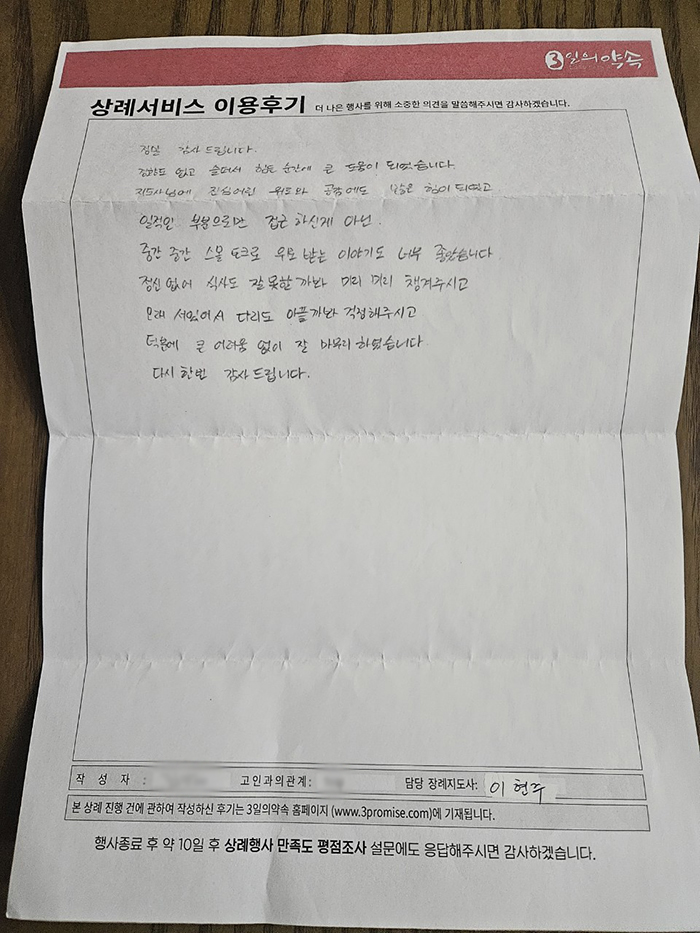 3일의약속
상례서비스 이용후기 더 나은 행사를 위해 소중한 의견을 말씀해주시면 감사하겠습니다.
정말 감사드립니다.
경황도 없고 슬퍼서 힘든 순간에 큰 도움이 되었습니다.
지도사님에 진심어린 위로와 공감에도 많은 힘이 되었고
일적인 부분으로만 접근 하신게 아닌.
중간 중간 스몰 토크로 위로 받는 이야기도 너무 좋았습니다
정신 없어 식사도 잘 못할까봐 미리 미리 챙겨주시고
오래 서있어서 다리도 아플까봐 걱정해주시고
덕분에 큰 어려움 없이 잘 마무리 하였습니다
다시 한번 감사드립니다.
작 성 자 : 고인과의관계: 담당 장례지도사: 이현주
본 상례 진행 건에 관하여 작성하신 후기는 3일의약속 홈페이지 (www.3promise.com)에 기재됩니다.
행사종료 후 약 10일 후 상례행사 만족도 평점조사 설문에도 응답해주시면 감사하겠습니다.